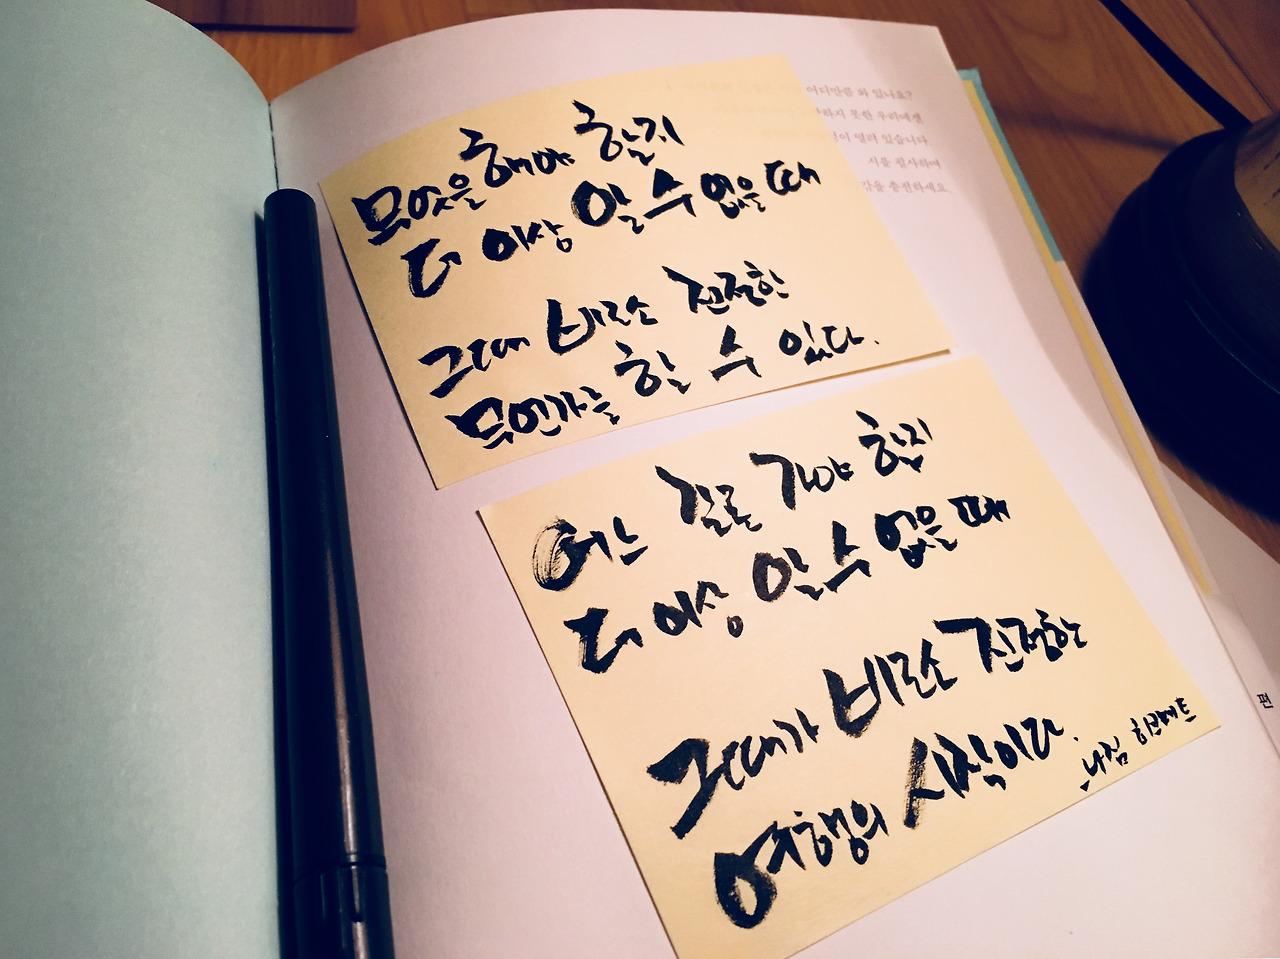 어디만큼 와 있나요?
하지 못한 우리에겐
이 열려 있습니다.
시를 필사하며
감을 충전하세요.
무엇을 해야 할지
더 이상 알 수 없을 때
그때 비로소 진정한
무언가를 할 수 있다.
어느 길로 가야 할지
더 이상 알 수 없을 때
그때가 비로소 진정한
여행의 시작이다.
나짐 히크메트
편